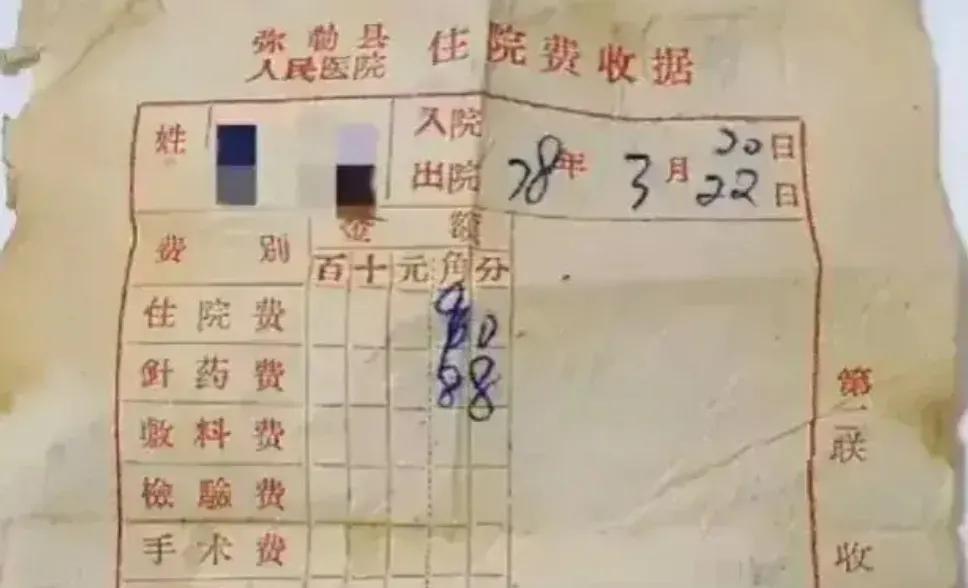 弥勒县
人民医院 住院费收据
姓 入院 20日
出院 78年 3月 22日
费别 金额
百 十 元 角 分
住院费 0
針药费 8 8
敷料费
檢驗费
手术费
第二联
收